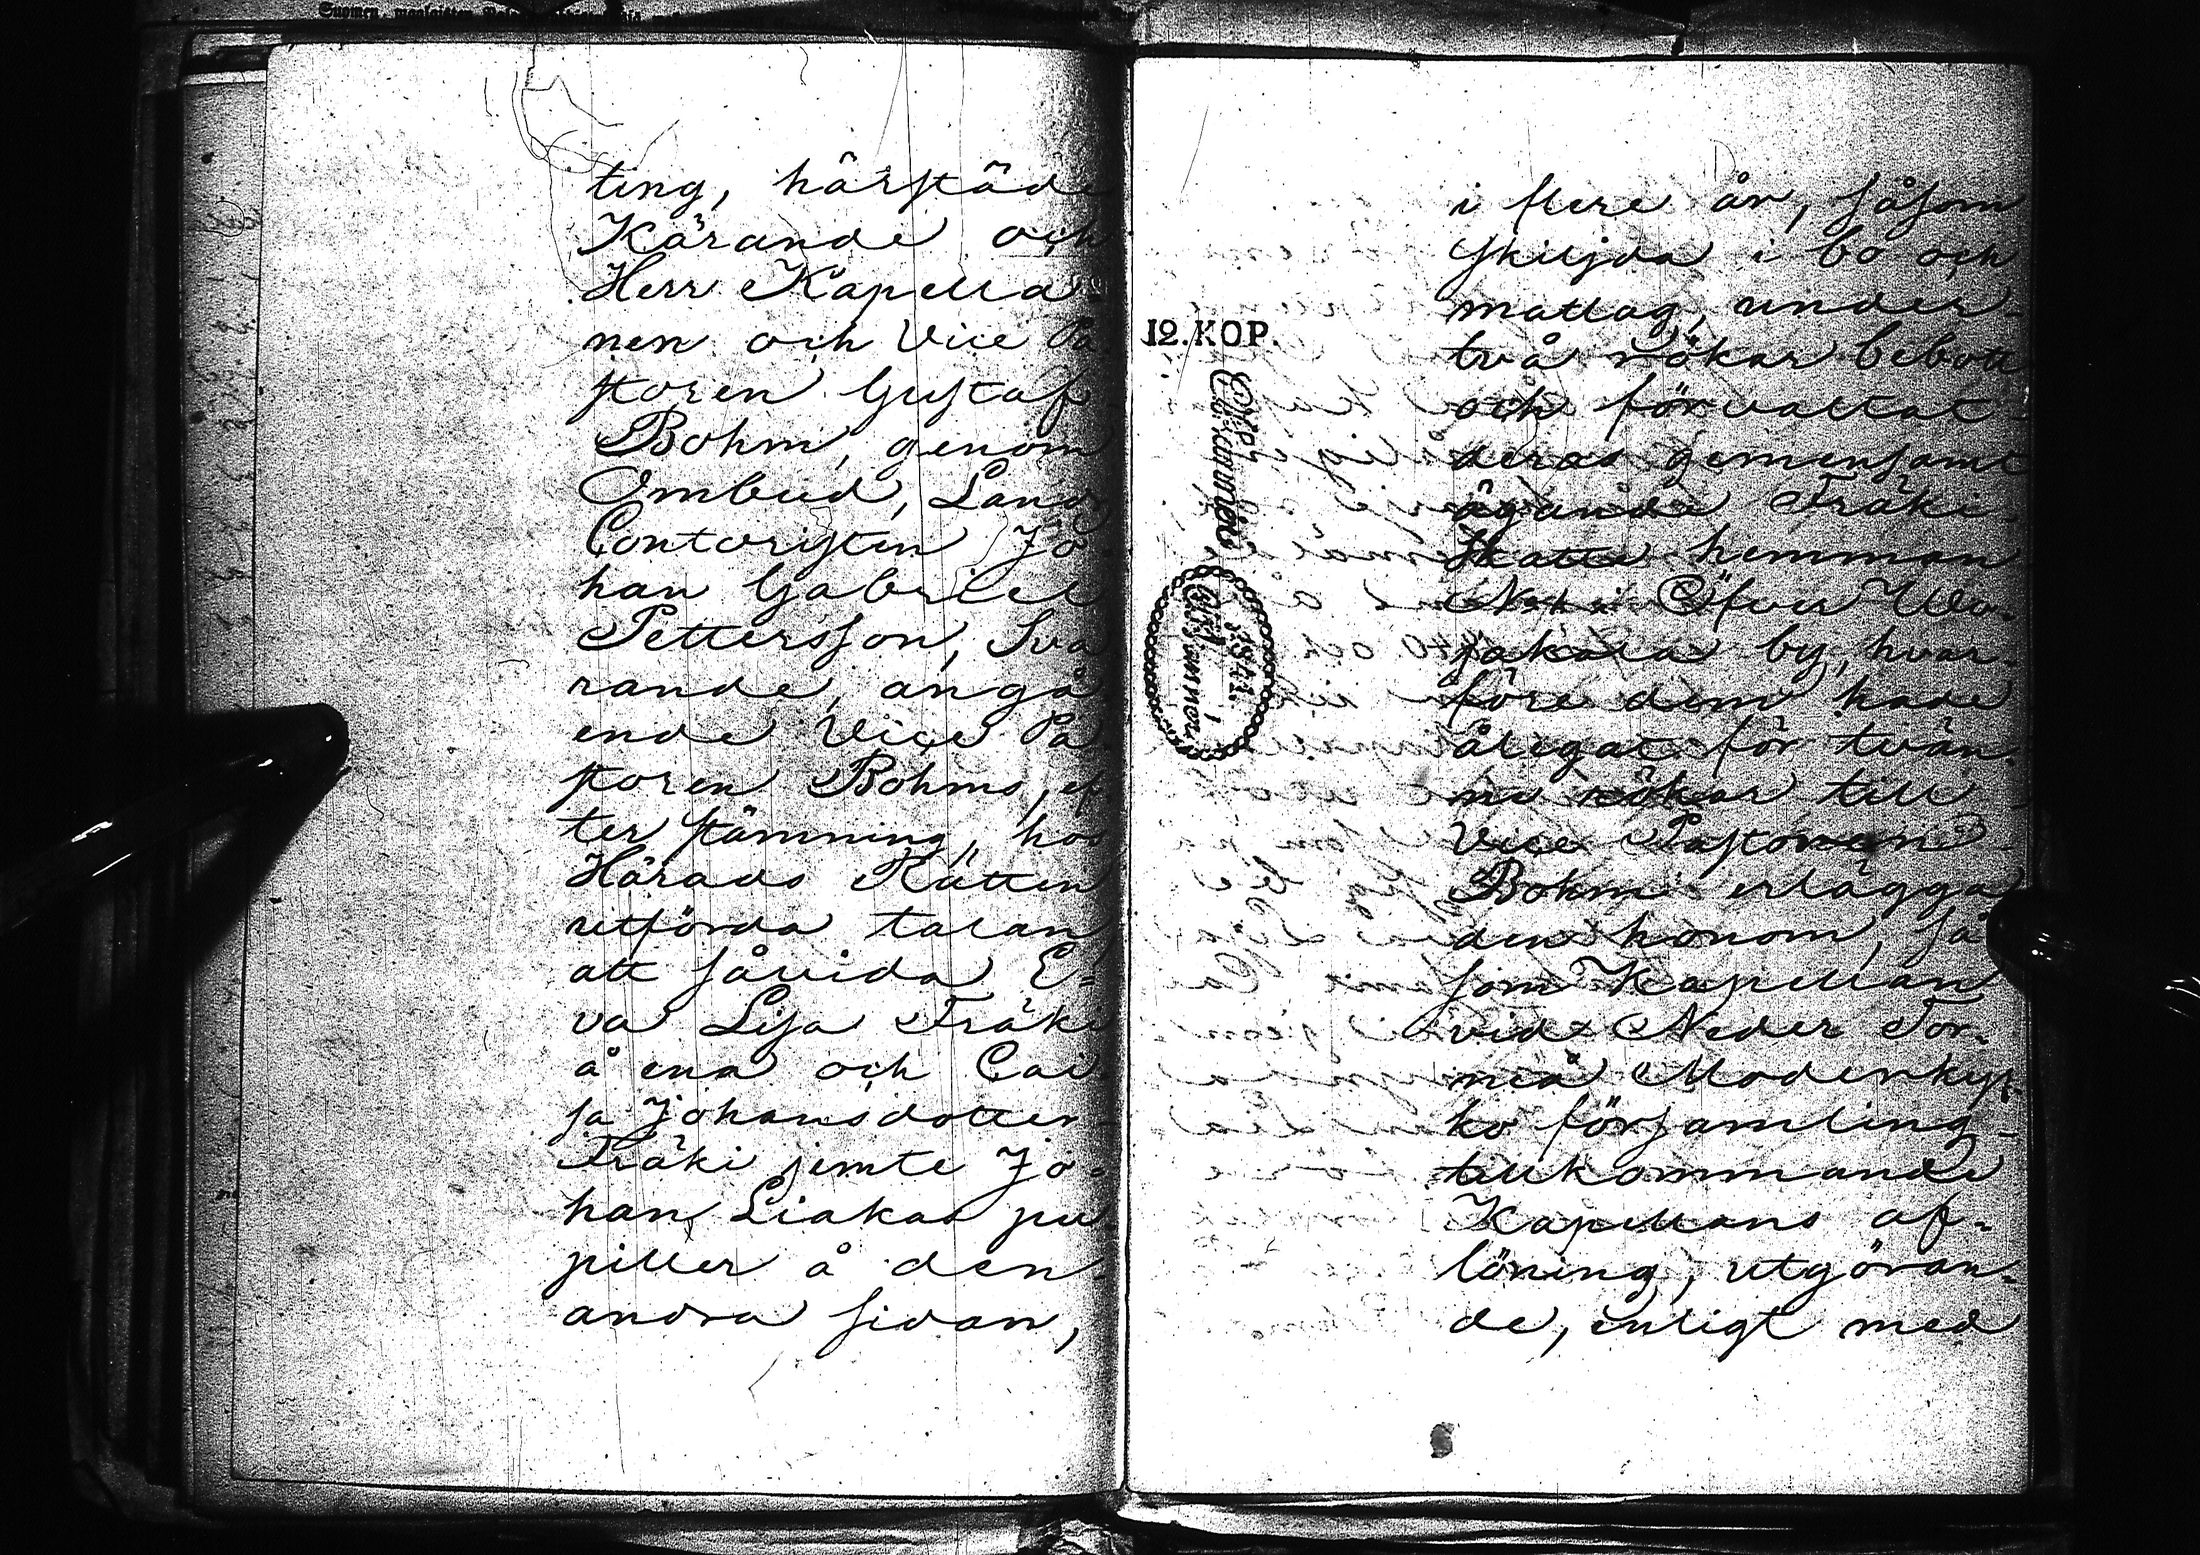 ting, härstäde
Kärande och
Herr Kapella-
nen och Vice Pa
storen Gustaf
Bohm, genom
Ombud, Lands
Contoristen Jo-
han Gabriel
Pettersson, Sva
rande, angå
ende Vice Pa
storen Bohms, ef-
ter stämning, hos
Härads Rätten
utförda talan
att såvida E-
va Lisa Fräki
å ena och Cai
sa Johansdotter
Fräki jemte Jo-
han Liakas pu
piller å den
andra sidan,
12.KOP.
1841.
i flere år, såsom
skiljda i bo och
matlag, under
två rökar bebott
och förvaltat
deras gemensamt
ägande Fräki
Skatte hemman
i Öfver Wo-
jakala by, hvar-
före dem hade
ålegat för tvän-
ne rökar till
Vice Pastoren
Bohm erlägga
den honom, så
som Kapellan
vid Neder Tor-
neå Moderkyr-
ko församling
tillkommande
Kapellans af-
löning, utgöran-
de, enligt med